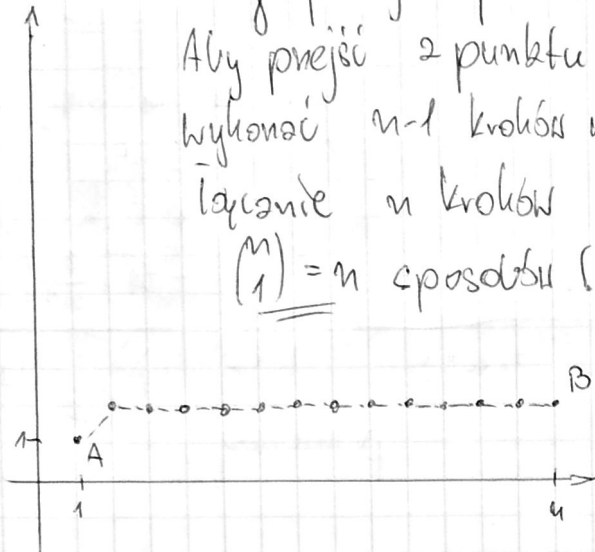 Aby przejść z punktu
wykonać n-1 kroków
łącznie n kroków
(n 1) = n sposobów (
B
1
A
1
n